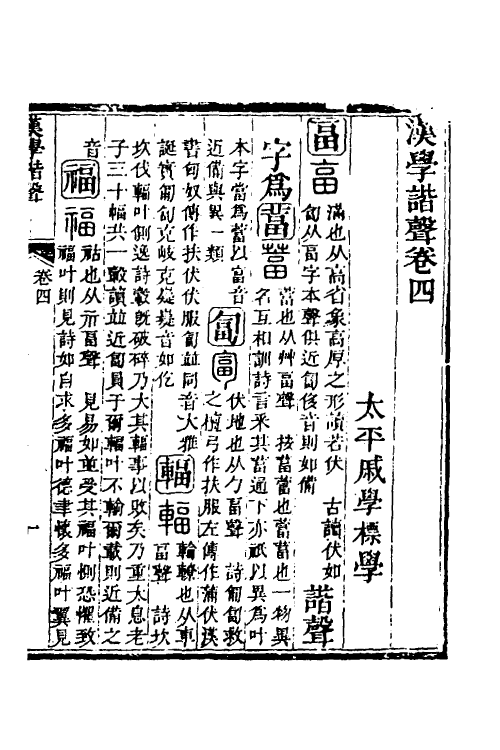 漢學諧聲卷四
太平戚學標學
畐 畐 滿也从高省象高厚之形讀若伏 古讀伏如
匐从畐字本聲供近匐後音則如備 諧聲
字爲葍 葍 葍也从艸畐聲 按葍葍也葍葍也一物異
名互和訓詩言采其葍通下亦祇以異為叶
本字當爲葍以富音
近備與異一類 匐 匐 伏地也从勹畐聲 詩匍匐救
之檀弓作扶服左傳作蒲伏漢
書匈奴傳作扶伏伏服匐並同音大雅
誕實匍匐克岐克嶷嶷音如佗 輻 輻 輪轑也从車
畐聲 詩坎
坎伐輻叶側逸詩轂既破碎乃大其輻事以敗矣乃重太息老
子三十輻共一轂讀並近匐員于爾輻叶不輸爾載則近備之
音 福 福 祜也从示畐聲 見易如並受其福叶惻恐懼致
福叶則見詩如自求多福叶德聿懷多福叶翼見
漢學諧聲 卷四 一